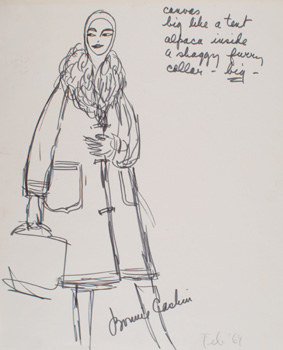 canvas
big like a tent
alpaca inside
a shaggy furry
collar - big -
Bonnie Cashin
Feb. '69